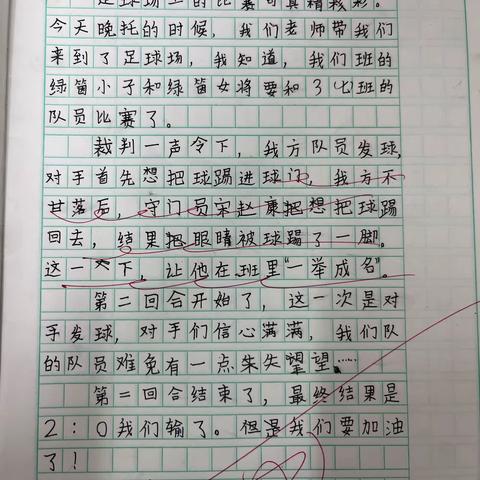 足球场上的比赛可真精彩。
今天晚托的时候，我们老师带我们
来到了足球场，我知道，我们班的
绿茵小子和绿茵女将要和37班的
队员比赛了。
裁判一声令下，我方队员发球，
对手首先想把球踢进球门，我方不
甘落后，守门员宋赵康把想把球踢
回去，结果把眼睛被球踢了一脚。
这一下，让他在班里“一举成名”。
第二回合开始了，这一次是对
手发球，对手们信心满满，我们队
的队员难免有一点失望……
第二回合结束了，最终结果是
2：0我们输了。但是我们要加油
了！